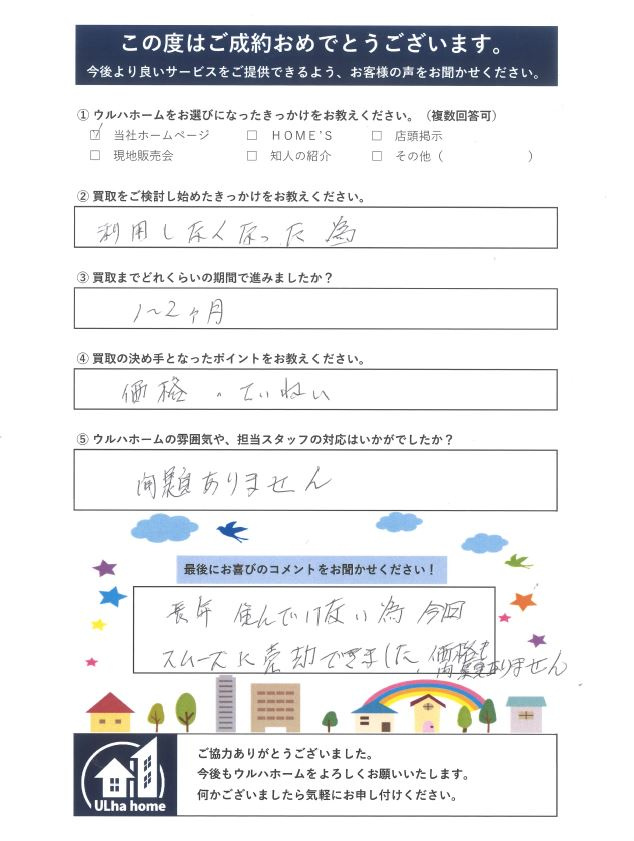 この度はご成約おめでとうございます。
今後より良いサービスをご提供できるよう、お客様の声をお聞かせください。
① ウルハホームをお選びになったきっかけをお教えください。（複数回答可）
☑ 当社ホームページ □ HOME'S □ 店頭掲示
□ 現地販売会 □ 知人の紹介 □ その他（ ）
② 買取をご検討し始めたきっかけをお教えください。
利用しなくなった為
③ 買取までどれくらいの期間で進みましたか？
1〜2ヶ月
④ 買取の決め手となったポイントをお教えください。
価格・ていねい
⑤ ウルハホームの雰囲気や、担当スタッフの対応はいかがでしたか？
問題ありません
最後にお喜びのコメントをお聞かせください！
長年 住んでいない為 今回
スムーズに売却できました 価格も
問題ありません
ご協力ありがとうございました。
今後もウルハホームをよろしくお願いいたします。
何かございましたら気軽にお申し付けください。
ULha home